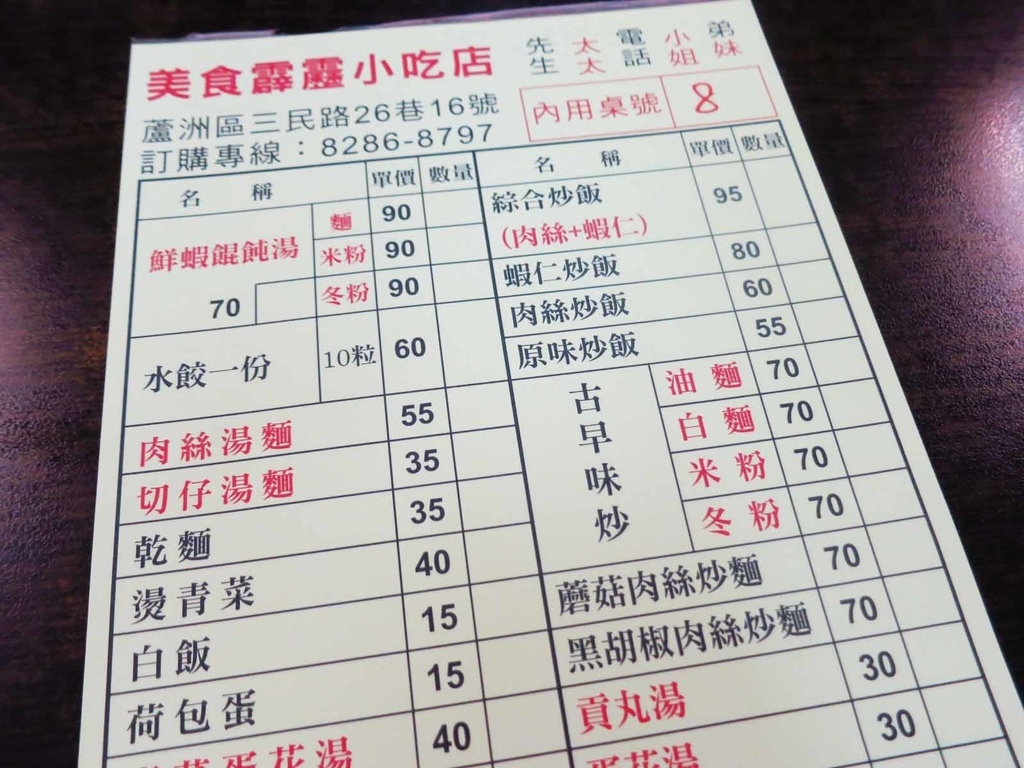 美食霹靂小吃店
蘆洲區三民路26巷16號
訂購專線：8286-8797
先生 太太 電話 小姐 弟妹
內用桌號 8
名稱 單價 數量
鮮蝦餛飩湯 70
麵 90
米粉 90
冬粉 90
水餃一份 10粒 60
肉絲湯麵 55
切仔湯麵 35
乾麵 35
燙青菜 40
白飯 15
荷包蛋 15
蛋花湯 40
名稱 單價 數量
綜合炒飯 95
(肉絲+蝦仁)
蝦仁炒飯 80
肉絲炒飯 60
原味炒飯 55
古早味炒
油麵 70
白麵 70
米粉 70
冬粉 70
蘑菇肉絲炒麵 70
黑胡椒肉絲炒麵 70
貢丸湯 30
蛋花湯 30